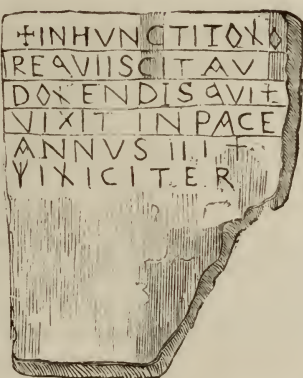 +INHVNCTITOλO
REQVIISCIT AV
DOλENDIS QVI+
VIXIT IN PACE
ANNVS III +
ΨIλICITER